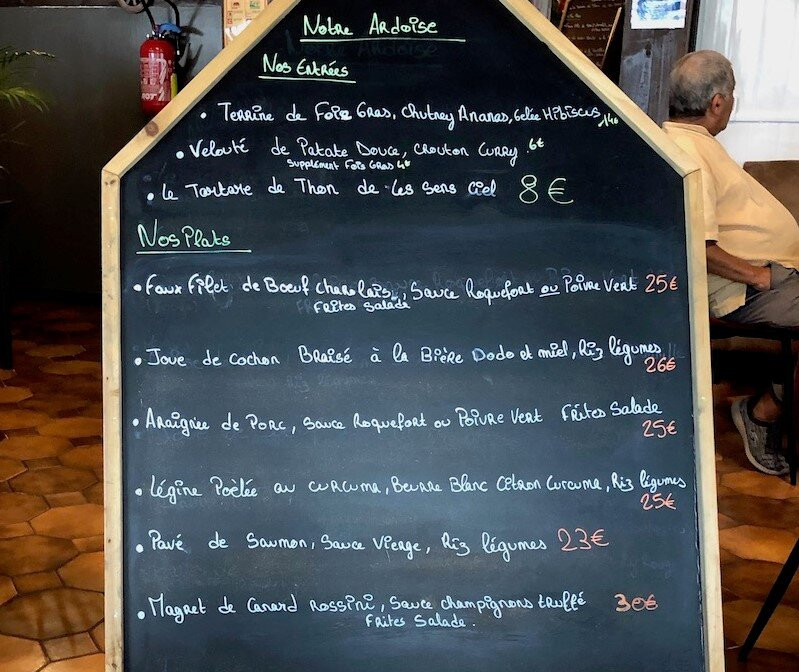 Notre Ardoise
Nos Entrées
• Terrine de Foie Gras, Chutney Ananas, Gelée Hibiscus 14€
• Velouté de Patate Douce, Crouton Curry 6€
Supplément Foie Gras 4€
• Le Tartare de Thon de Les Sens Ciel 8€
Nos Plats
• Faux Filet de Boeuf Charolais, Sauce Roquefort ou Poivre Vert 25€
Frites Salade
• Joue de Cochon Braisé à la Bière Dodo et miel, Riz légumes
26€
• Araignée de Porc, Sauce Roquefort ou Poivre Vert Frites Salade
25€
• Légine Poèlée au curcuma, Beurre Blanc Citron Curcuma, Riz légumes
25€
• Pavé de Saumon, Sauce Vierge, Riz légumes 23€
• Magret de Canard Rossini, Sauce champignons truffé 30€
Frites Salade.